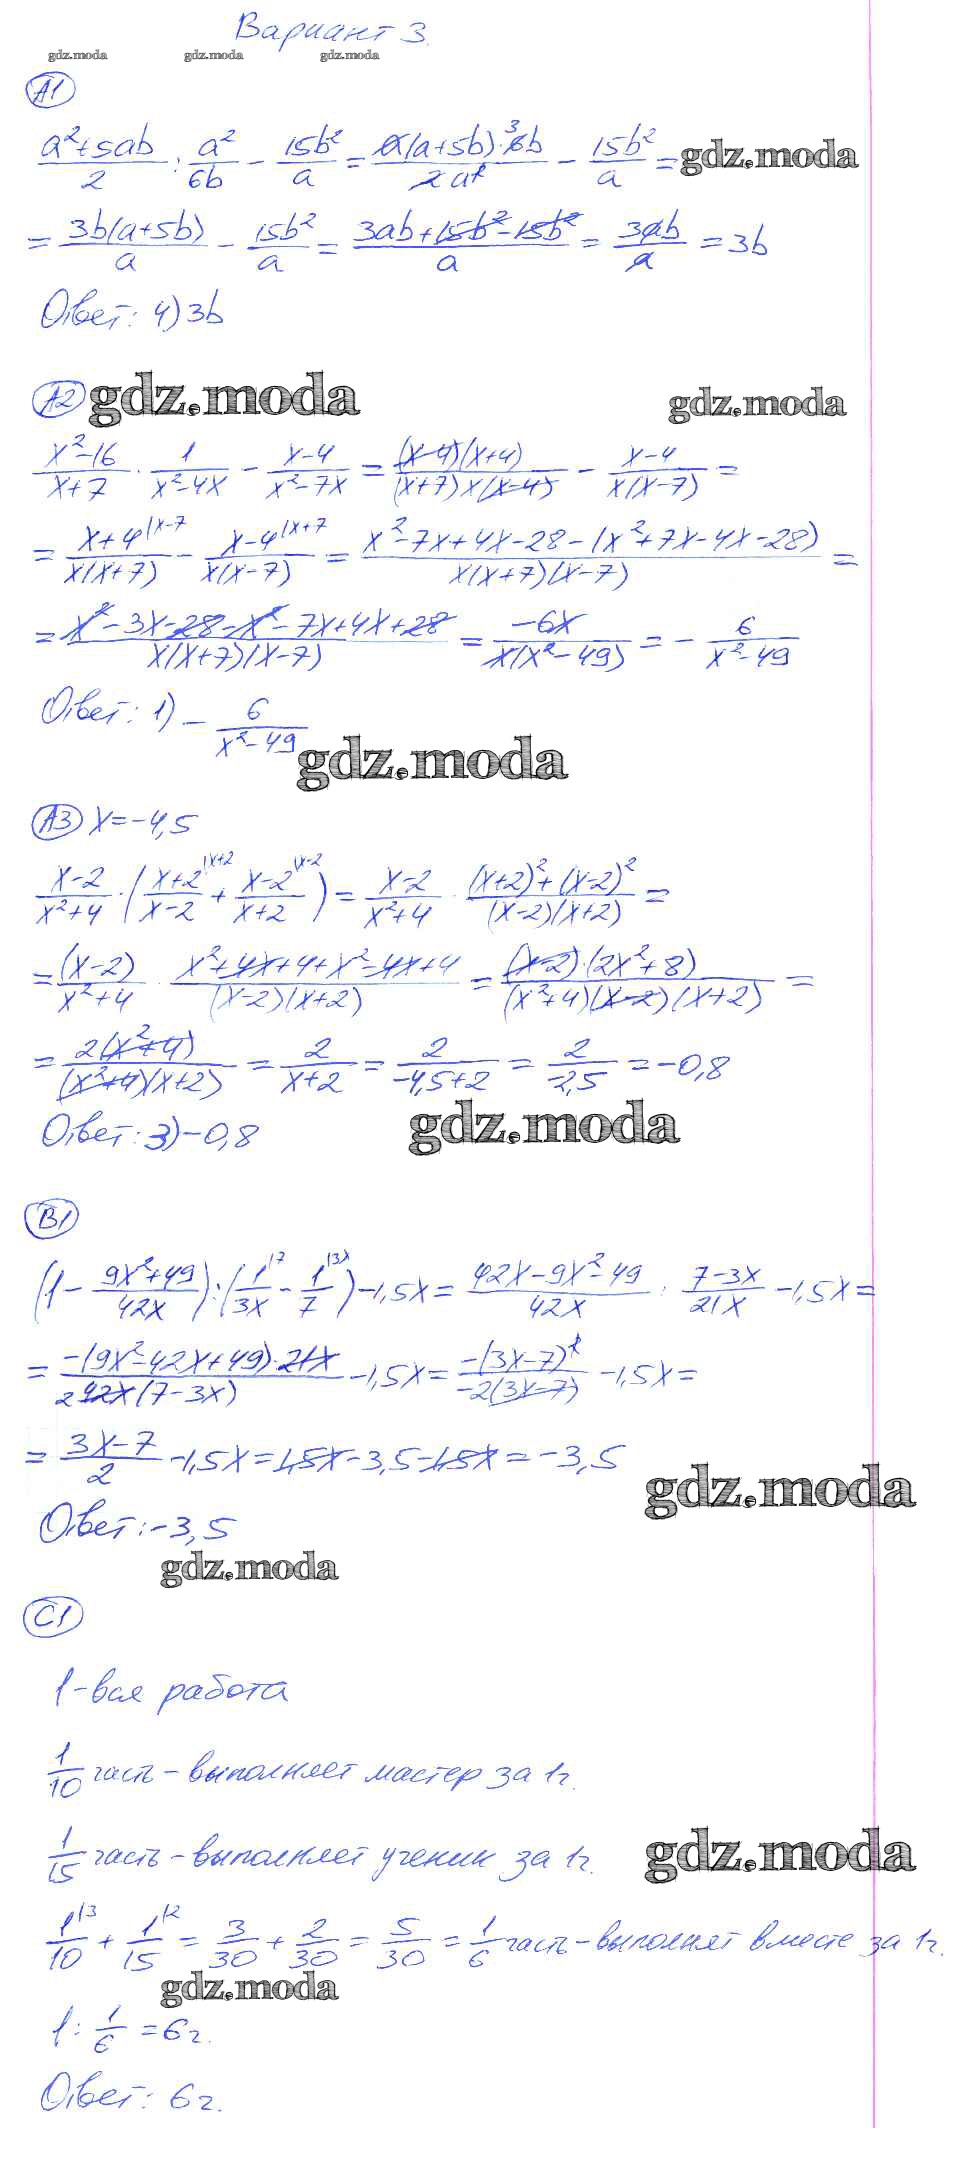 Вариант 3.
gdz.moda gdz.moda gdz.moda
А1
(a²+5ab)/2 : a²/6b − 15b²/a = a(a+5b)·6b ³/2a² − 15b²/a = gdz.moda
= 3b(a+5b)/a − 15b²/a = (3ab+15b²−15b²)/a = 3ab/a = 3b
Ответ: 4) 3b
А2 gdz.moda gdz.moda
(x²−16)/(x+7) · 1/(x²−4x) − (x−4)/(x²−7x) = (x−4)(x+4)/((x+7)x(x−4)) − (x−4)/(x(x−7)) =
= (x+4)|x−7/(x(x+7)) − (x−4)|x+7/(x(x−7)) = (x²−7x+4x−28−(x²+7x−4x−28))/(x(x+7)(x−7)) =
= (x²−3x−28−x²−7x+4x+28)/(x(x+7)(x−7)) = −6x/(x(x²−49)) = − 6/(x²−49)
Ответ: 1) − 6/(x²−49)
gdz.moda
А3 x=−4,5
(x−2)/(x²+4) · ((x+2)|x+2/(x−2) + (x−2)|x−2/(x+2)) = (x−2)/(x²+4) · ((x+2)²+(x−2)²)/((x−2)(x+2)) =
= (x−2)/(x²+4) · (x²+4x+4+x²−4x+4)/((x−2)(x+2)) = (x−2)·(2x²+8)/((x²+4)(x−2)(x+2)) =
= 2(x²+4)/((x²+4)(x+2)) = 2/(x+2) = 2/(−4,5+2) = 2/−2,5 = −0,8
Ответ: 3) −0,8 gdz.moda
В1
(1 − (9x²+49)/42x) : (1|7/3x − 1|3x/7) −1,5x = (42x−9x²−49)/42x : (7−3x)/21x −1,5x =
= −(9x²−42x+49)·21x/(2 42x(7−3x)) −1,5x = −(3x−7)²/(−2(3x−7)) −1,5x =
= (3x−7)/2 −1,5x = 1,5x−3,5−1,5x = −3,5
gdz.moda
Ответ: −3,5
gdz.moda
С1
1 − вся работа
1/10 часть − выполняет мастер за 1ч.
1/15 часть − выполняет ученик за 1ч. gdz.moda
1|3/10 + 1|2/15 = 3/30 + 2/30 = 5/30 = 1/6 часть − выполнят вместе за 1ч.
gdz.moda
1 : 1/6 = 6ч.
Ответ: 6ч.